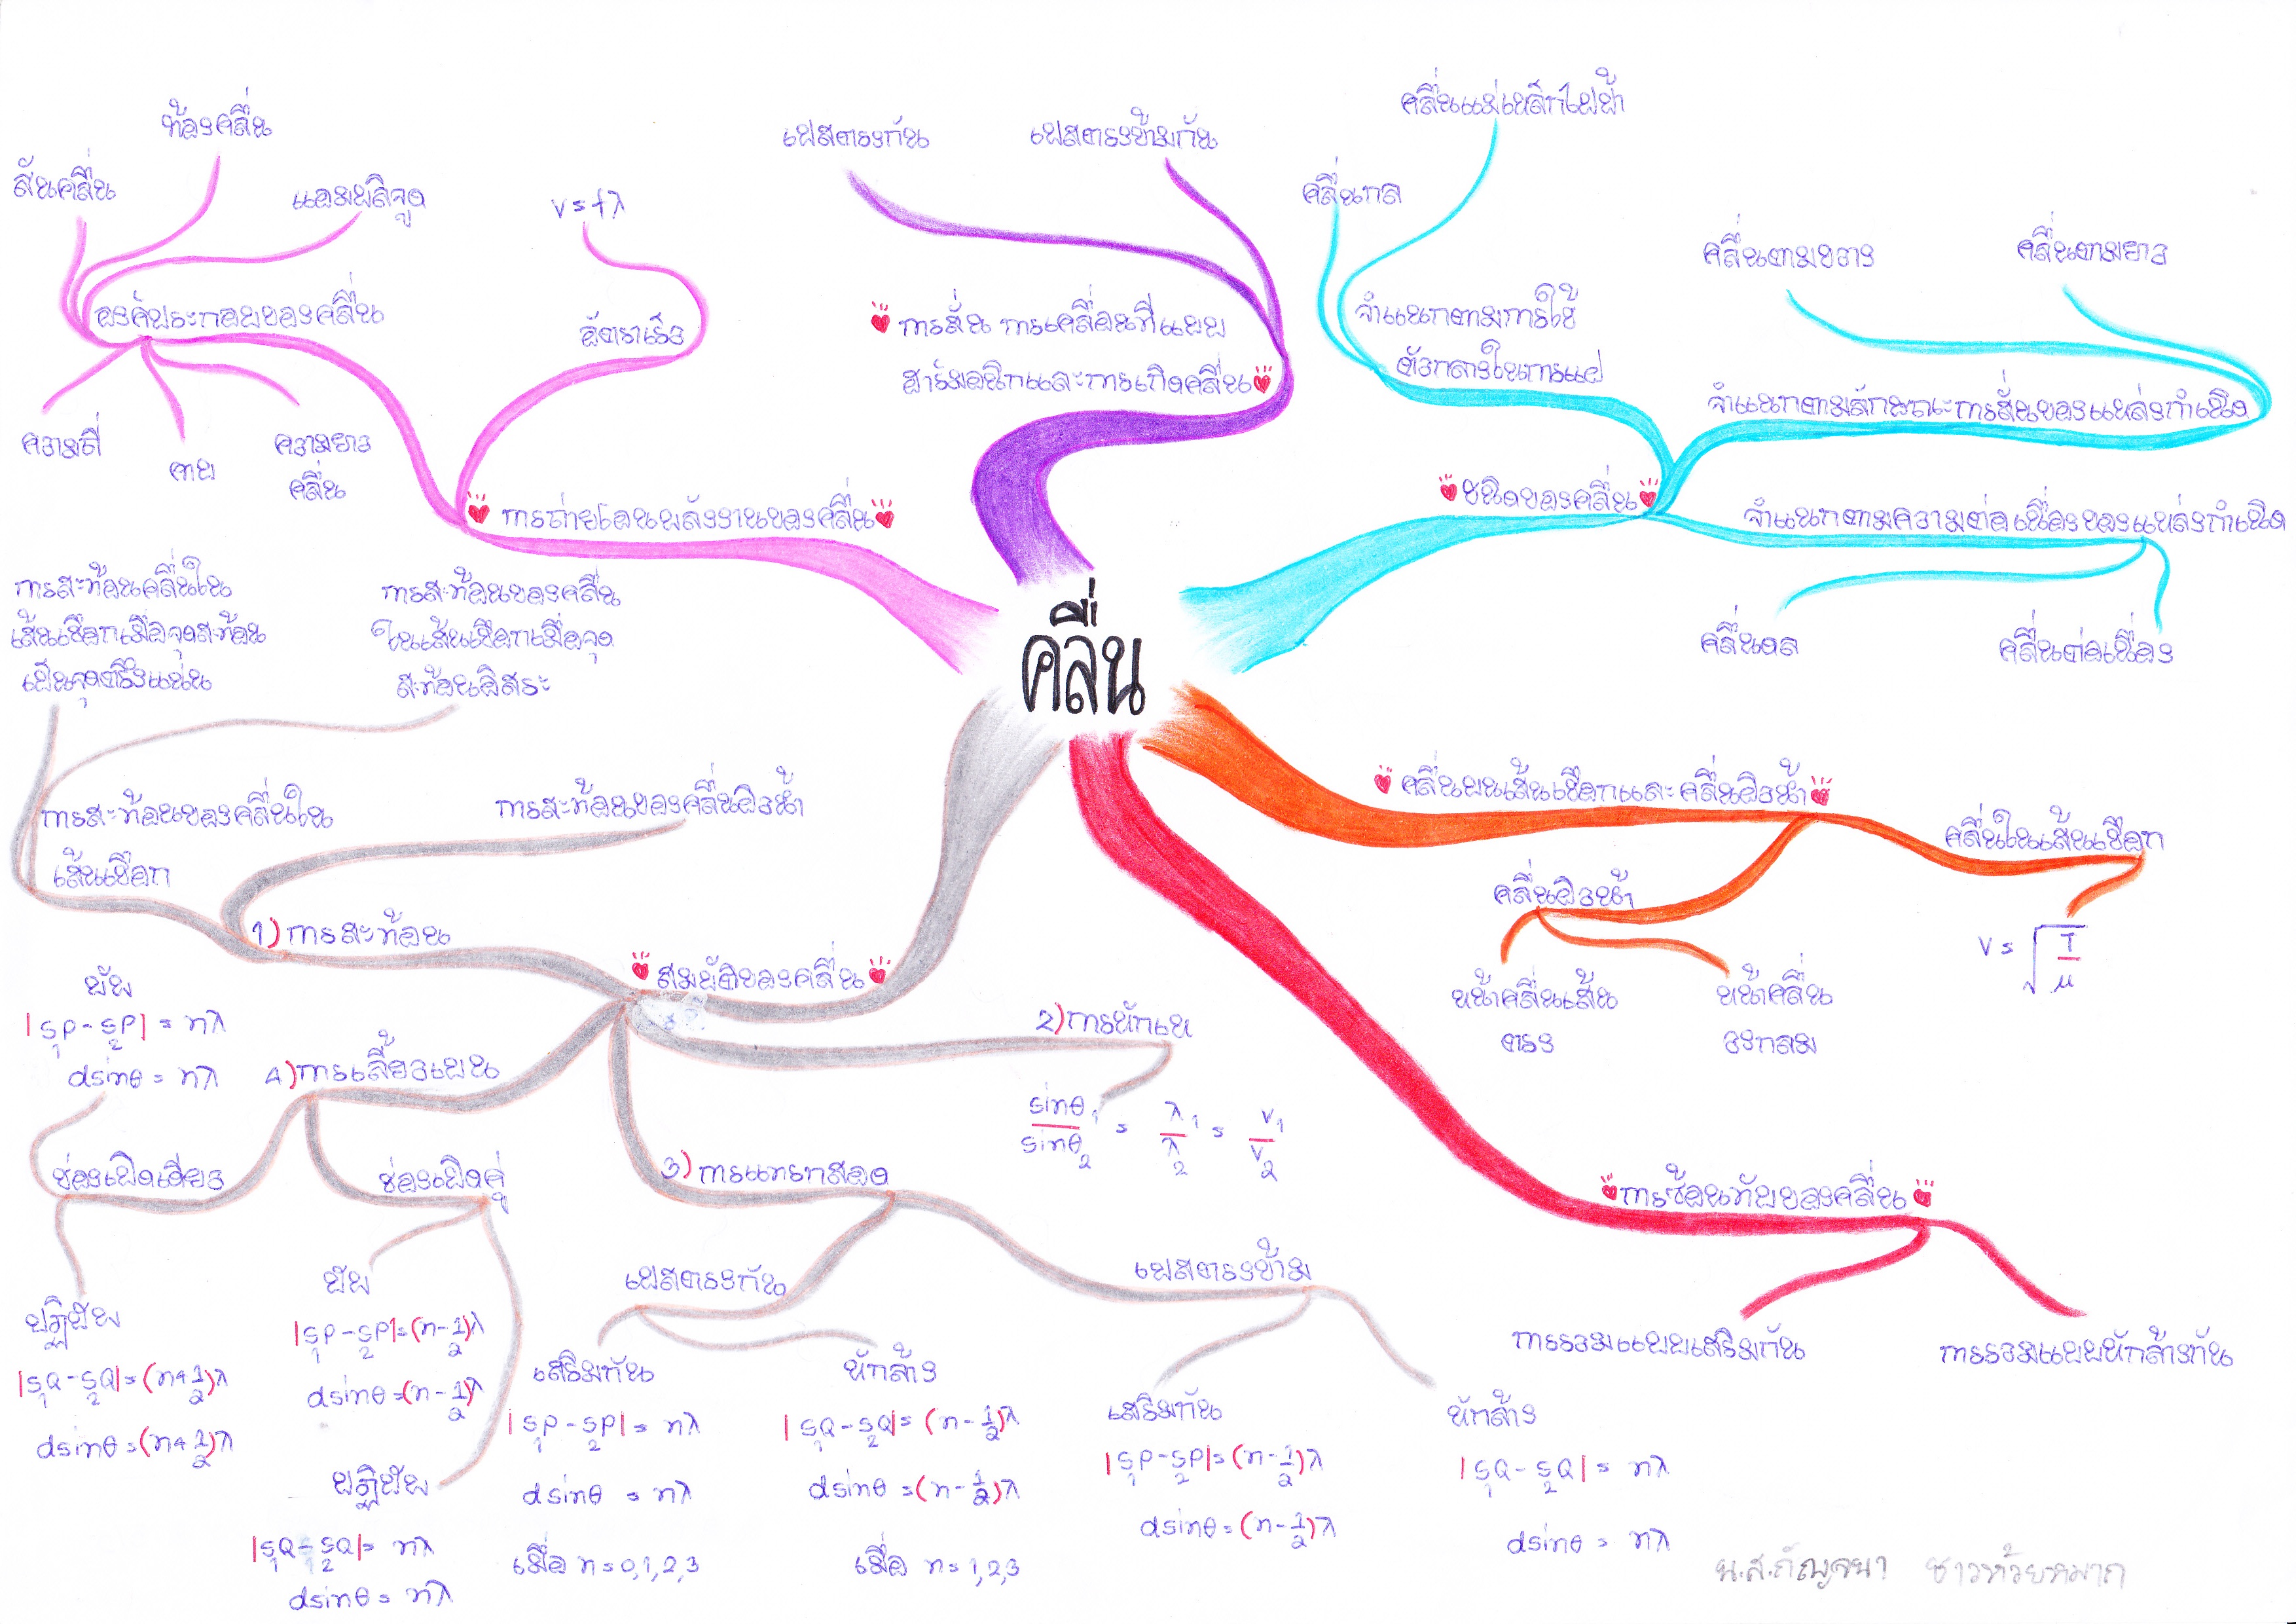 คลื่น
การสั่น การเคลื่อนที่แบบ
ฮาร์มอนิกและการเกิดคลื่น
เฟสตรงกัน
เฟสตรงข้ามกัน
ชนิดของคลื่น
จำแนกตามการใช้
ตัวกลางในการแผ่
คลื่นกล
คลื่นแม่เหล็กไฟฟ้า
จำแนกตามลักษณะการสั่นของแหล่งกำเนิด
คลื่นตามขวาง
คลื่นตามยาว
จำแนกตามความต่อเนื่องของแหล่งกำเนิด
คลื่นดล
คลื่นต่อเนื่อง
คลื่นบนเส้นเชือกและคลื่นผิวน้ำ
คลื่นในเส้นเชือก
v = √T/μ
คลื่นผิวน้ำ
หน้าคลื่นเส้น
ตรง
หน้าคลื่น
วงกลม
การซ้อนทับของคลื่น
การรวมแบบเสริมกัน
การรวมแบบหักล้างกัน
สมบัติของคลื่น
1) การสะท้อน
การสะท้อนของคลื่นผิวน้ำ
การสะท้อนของคลื่นใน
เส้นเชือก
การสะท้อนคลื่นใน
เส้นเชือกเมื่อจุดสะท้อน
เป็นจุดตรึงแน่น
การสะท้อนของคลื่น
ในเส้นเชือกเมื่อจุด
สะท้อนอิสระ
2) การหักเห
sinθ₁/sinθ₂ = λ₁/λ₂ = v₁/v₂
3) การแทรกสอด
เฟสตรงกัน
เสริมกัน
|S₁P - S₂P| = nλ
dsinθ = nλ
เมื่อ n = 0,1,2,3
หักล้าง
|S₁Q - S₂Q| = (n - 1/2)λ
dsinθ = (n - 1/2)λ
เมื่อ n = 1,2,3
เฟสตรงข้าม
เสริมกัน
|S₁P - S₂P| = (n - 1/2)λ
dsinθ = (n - 1/2)λ
หักล้าง
|S₁Q - S₂Q| = nλ
dsinθ = nλ
4) การเลี้ยวเบน
ช่องเปิดเดี่ยว
บัพ
|S₁P - S₂P| = nλ
dsinθ = nλ
ปฏิบัพ
|S₁Q - S₂Q| = (n + 1/2)λ
dsinθ = (n + 1/2)λ
ช่องเปิดคู่
บัพ
|S₁P - S₂P| = (n - 1/2)λ
dsinθ = (n - 1/2)λ
ปฏิบัพ
|S₁Q - S₂Q| = nλ
dsinθ = nλ
การถ่ายโอนพลังงานของคลื่น
อัตราเร็ว
v = fλ
องค์ประกอบของคลื่น
สันคลื่น
ท้องคลื่น
แอมพลิจูด
ความถี่
คาบ
ความยาว
คลื่น
น.ส.กัญจนา ชาวห้วยหมาก